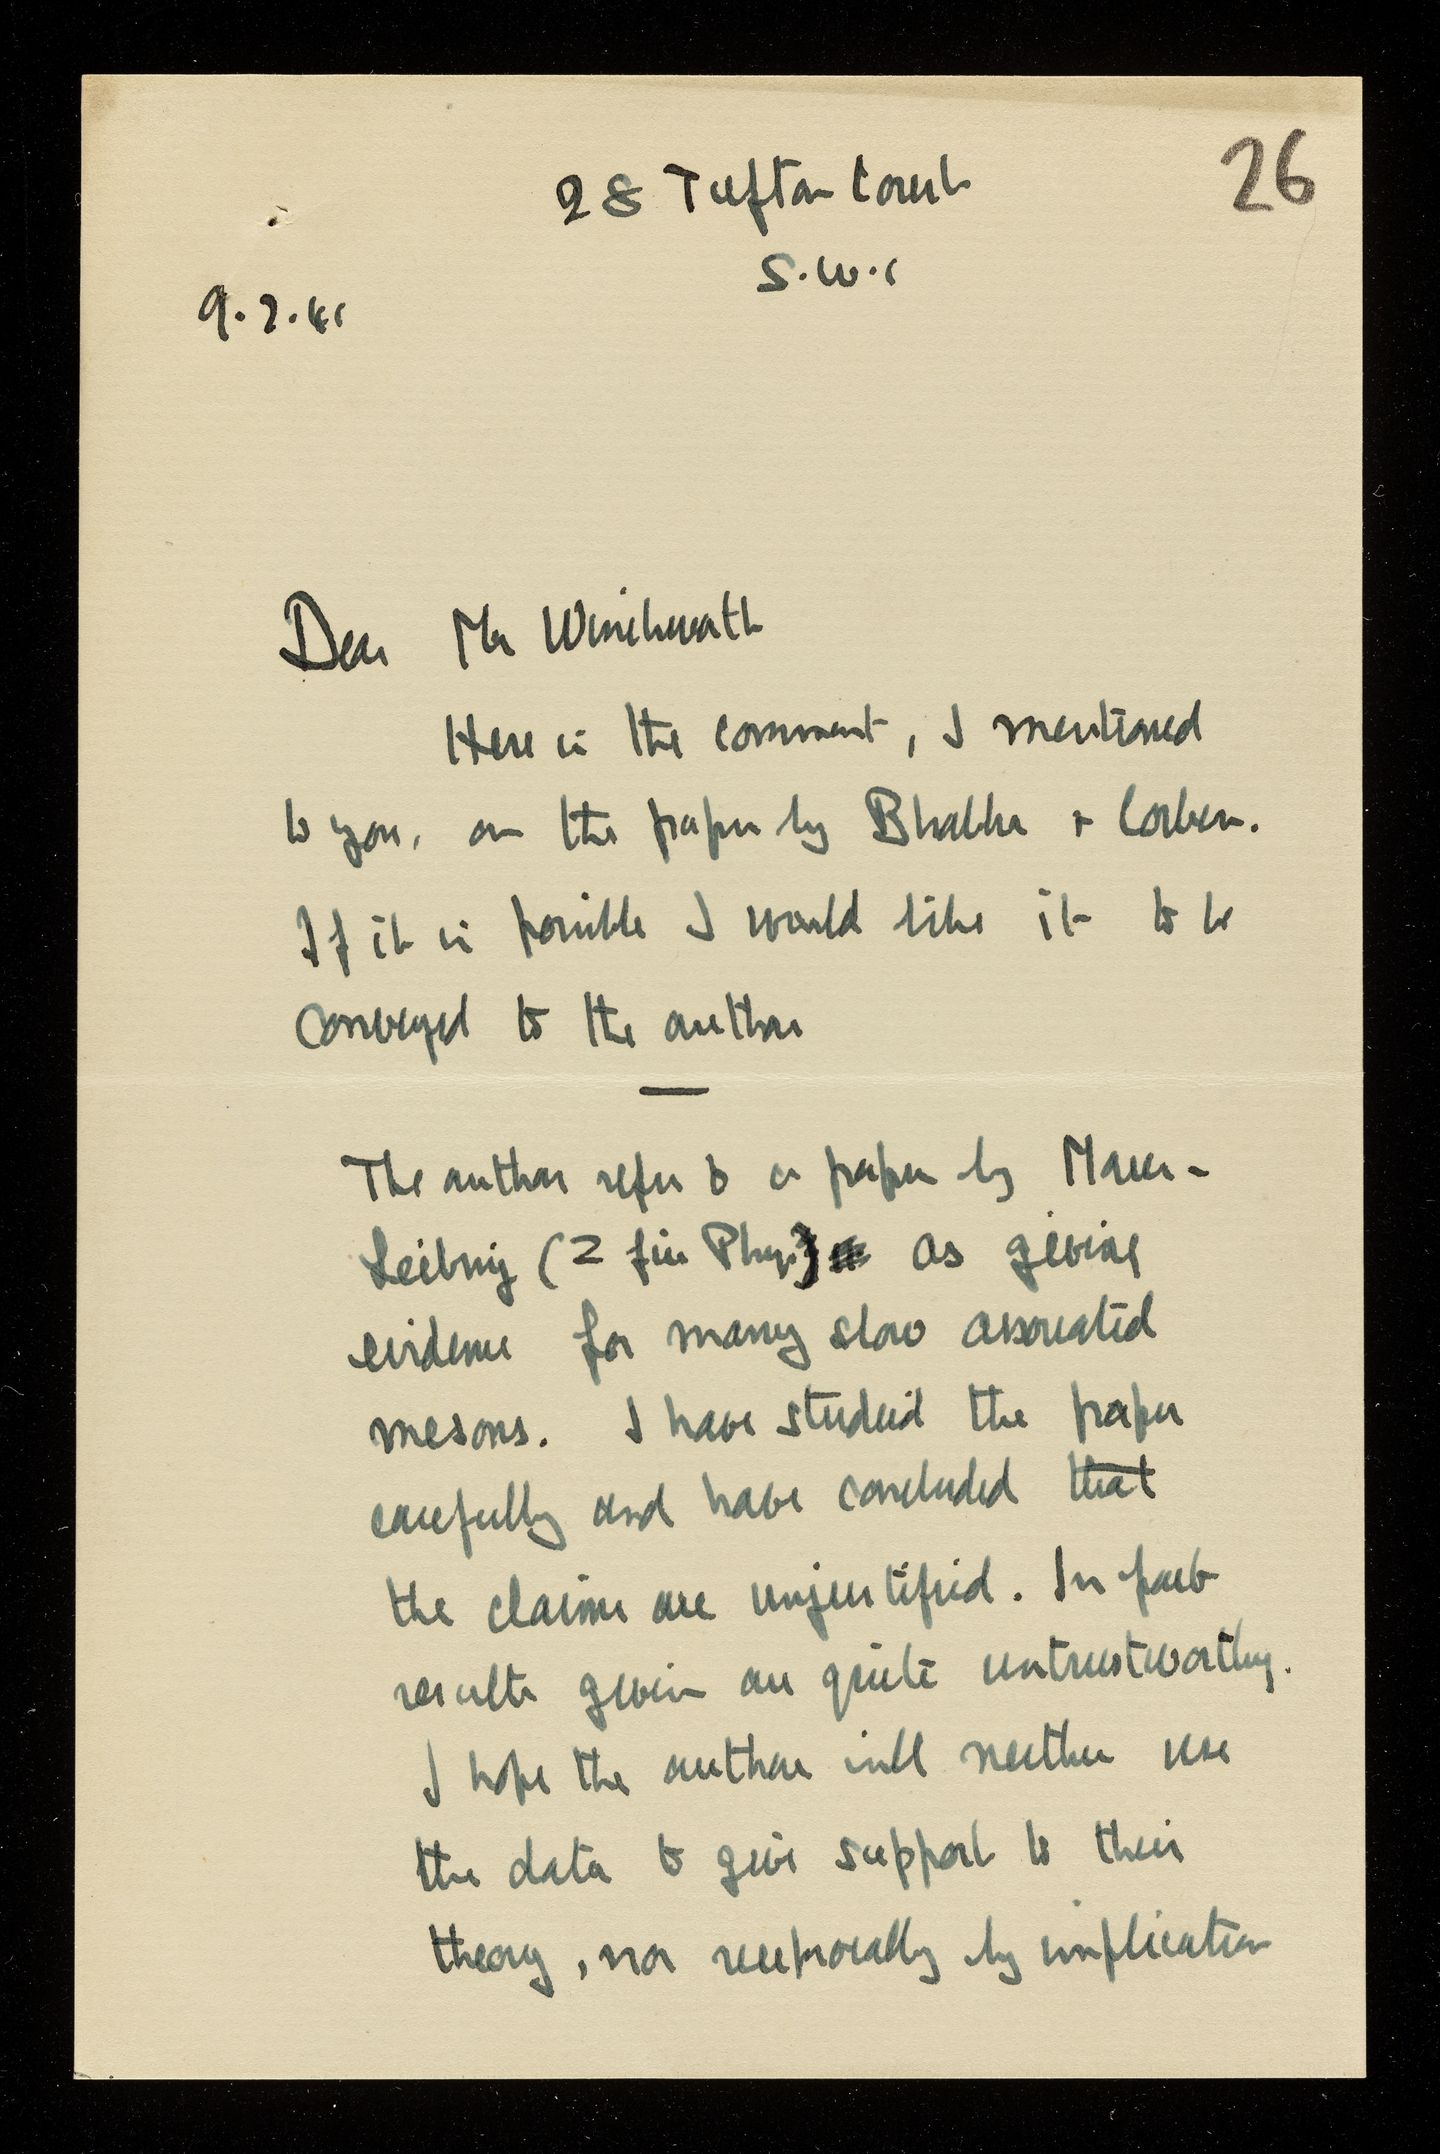 26
28 Tufton Court
S.W.1
9.7.41
Dear Mr Winckworth
Here is the comment, I mentioned
to you, on the paper by Bhabha + Corben.
If it is possible I would like it to be
conveyed to the author
The author refer to a paper by Maier-
Leibniz (Z für Phys.) as giving
evidence for many slow associated
mesons. I have studied the paper
carefully and have concluded that
the claims are unjustified. In fact
results given are quite untrustworthy.
I hope the author will neither use
the data to give support to their
theory, nor reciprocally by implication